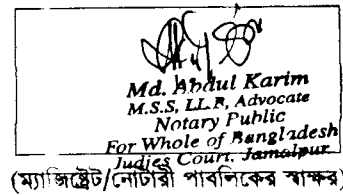 Md. Abdul Karim
M.S.S, LL.B, Advocate
Notary Public
For Whole of Bangladesh
Judies Court, Jamalpur
(ম্যাজিষ্ট্রেট/নোটারী পাবলিকের স্বাক্ষর)